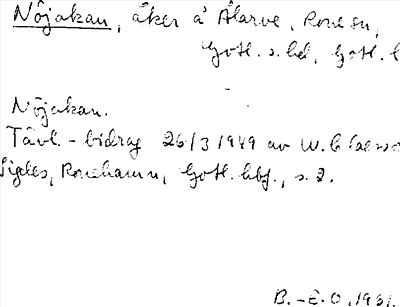 Nôjakan, åker å Ålarve, Rone sn,
Gotl. s. hd, Gotl. l
Nôjakan.
Tävl. - bidrag 26/3 1949 av W. Claesso
Sigdes, Ronehamn, Gotl. hbf., s. 2.
B.-E. O. 1961.